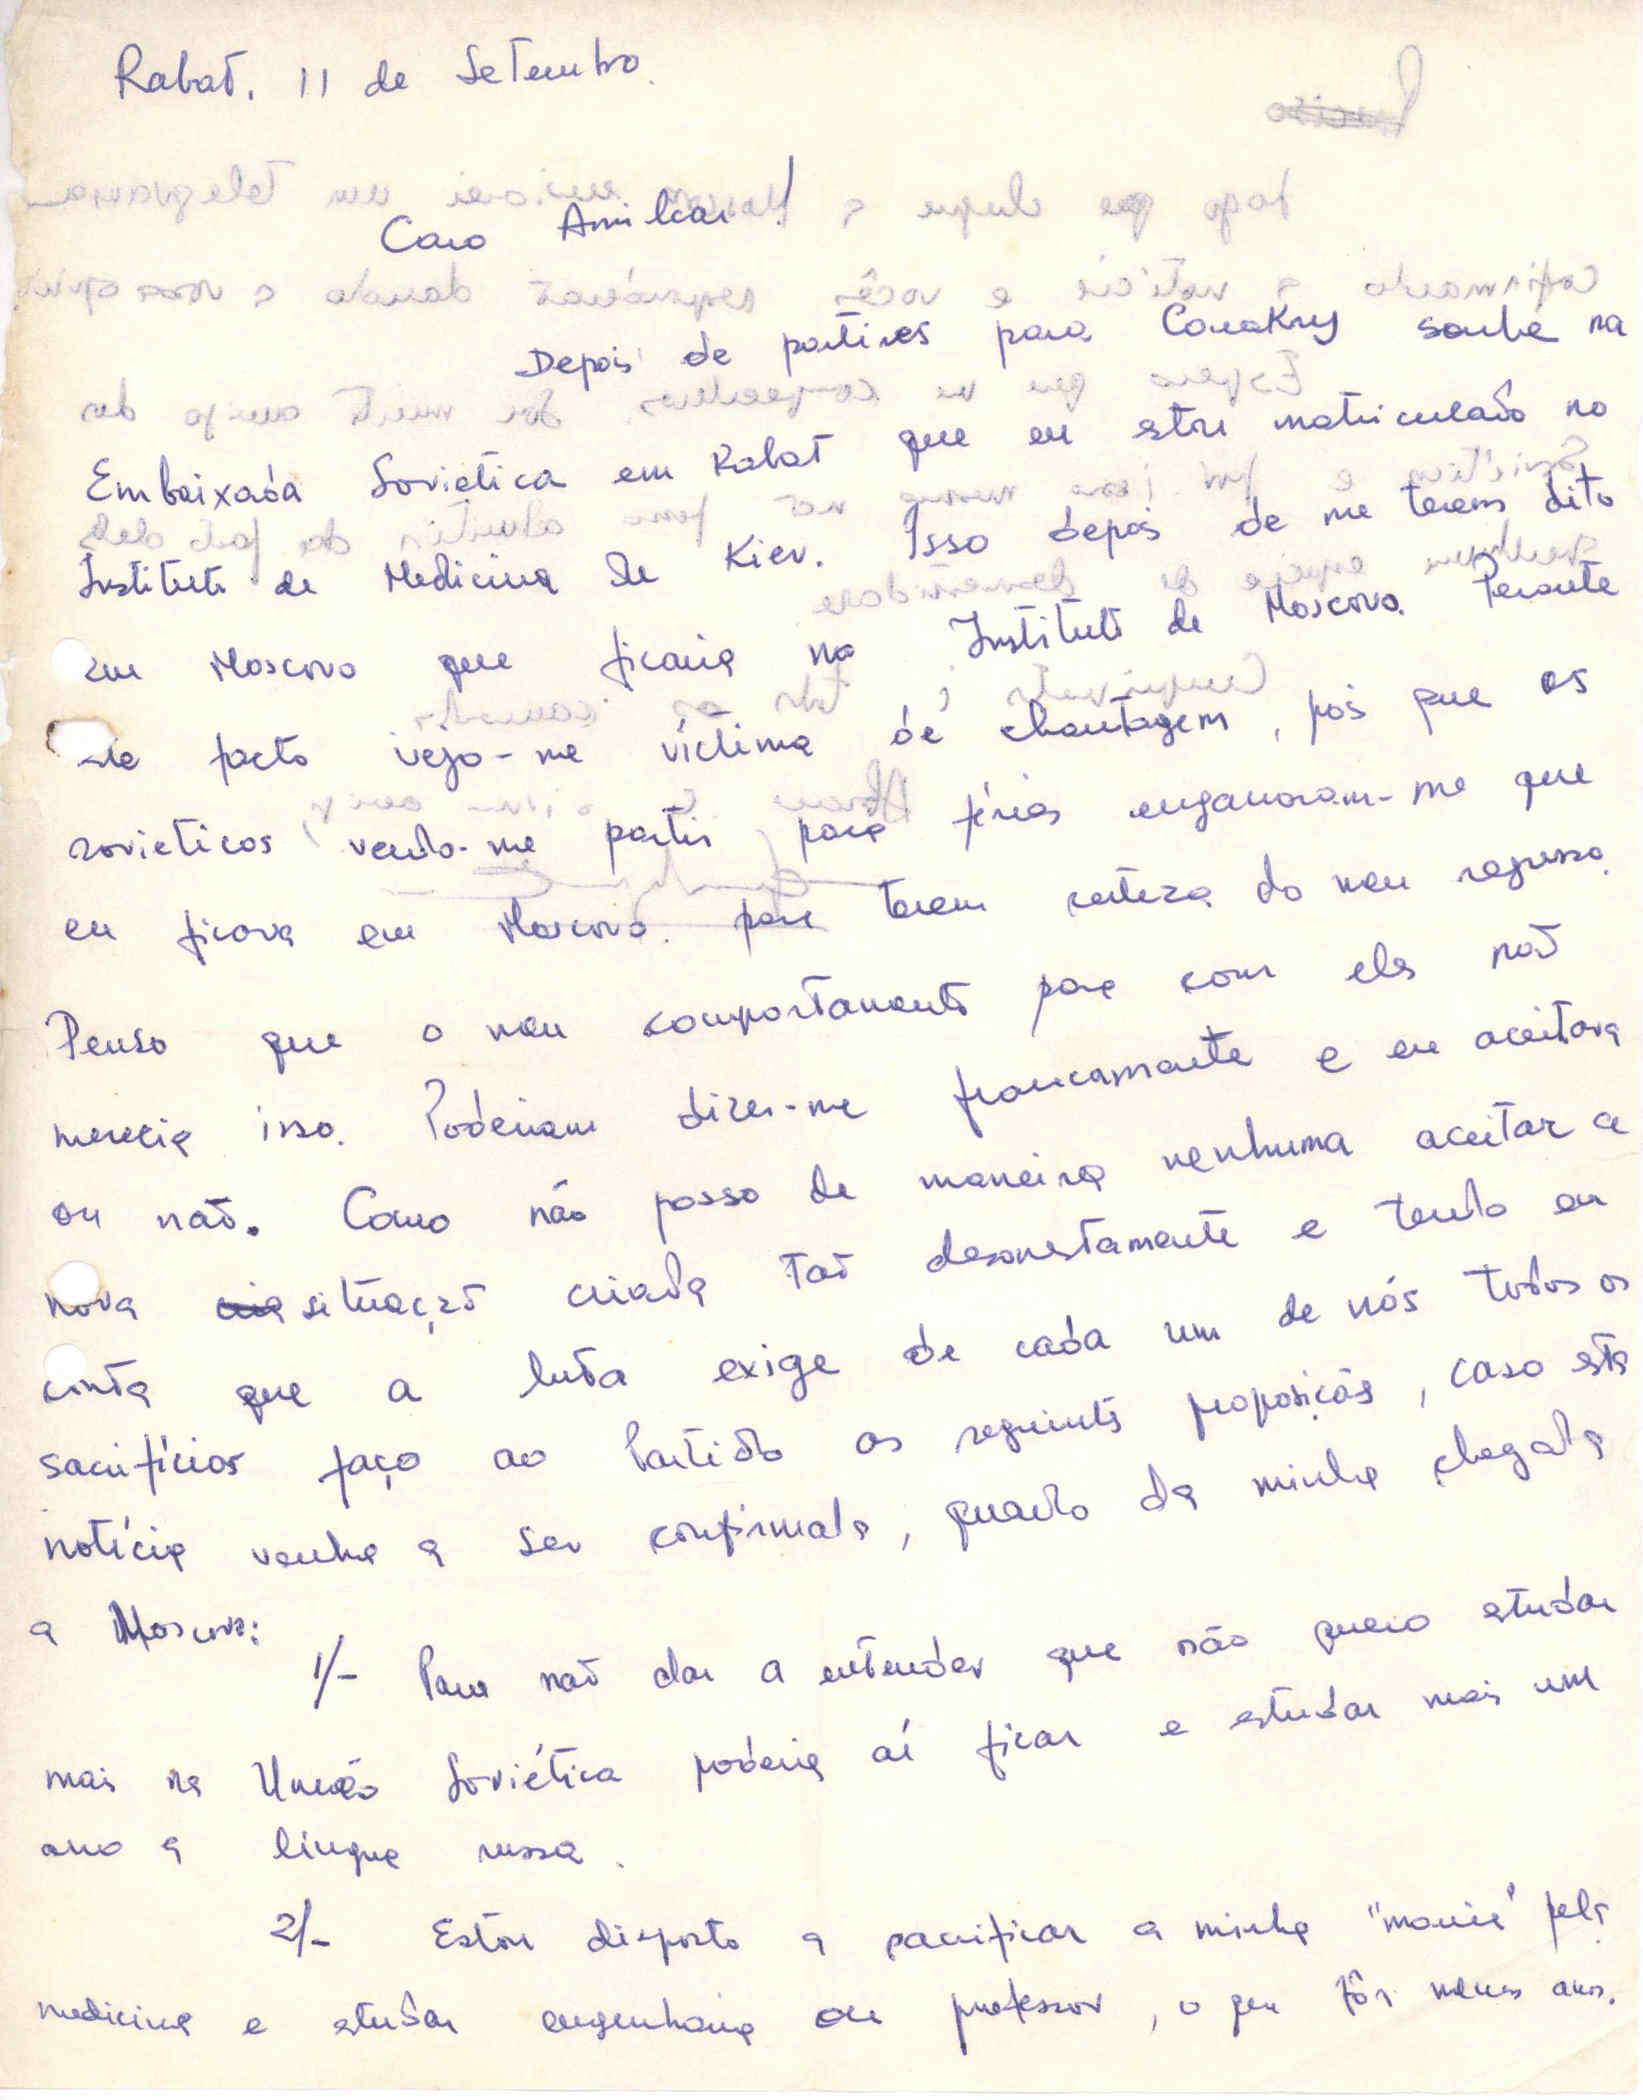 Rabat, 11 de Setembro.
Caro Amilcar!
Depois de partires para Conakry soube na
Embaixada Sovietica em Rabat que eu estou matriculado no
Instituto de Medicina de Kiev. Isso depois de me terem dito
em Moscovo que ficaria no Instituto de Moscovo. Perante
este facto vejo-me víctima de chantagem, pois que os
sovieticos vendo-me partir para férias enganaram-me que
eu ficava em Moscovo. para terem certeza do meu regresso.
Penso que o meu comportamento para com eles não
merecia isso. Poderiam dizer-me francamente e eu aceitava
ou não. Como não posso de maneira nenhuma aceitar a
nova situação criada tão desonestamente e tendo em
conta que a luta exige de cada um de nós todos os
sacrifícios faço ao Partido as seguintes proposições, caso esta
notícia venha a ser confirmada, quando da minha chegada
a Moscovo:
1/- Para não dar a entender que não quero estudar
mais na União Soviética poderia aí ficar e estudar mais um
ano a lingua russa.
2/- Estou disposto a sacrificar a minha "mania" pela
medicina e estudar engenharia ou professor, o que fôr menos anos.